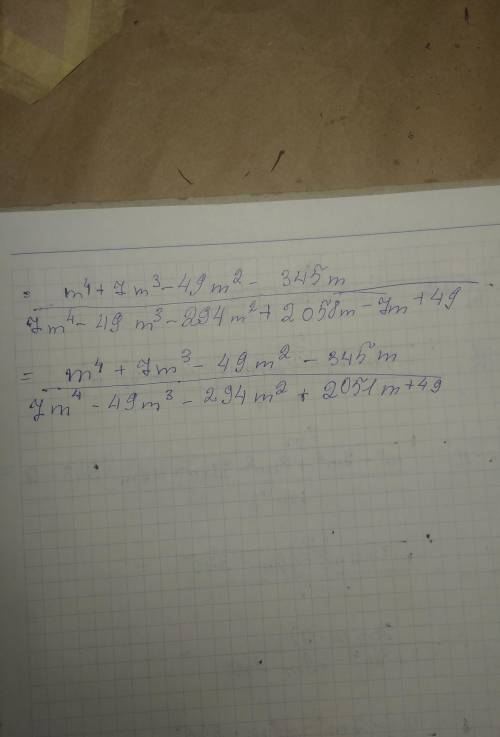 = m⁴ + 7m³ - 49m² - 345m
7m⁴ - 49m³ - 294m² + 2058m - 7m + 49
= m⁴ + 7m³ - 49m² - 345m
7m⁴ - 49m³ - 294m² + 2051m + 49